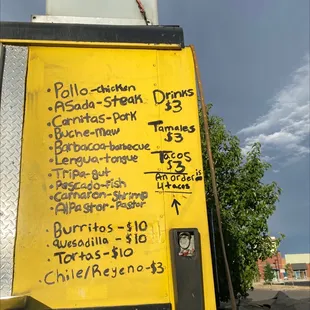 · Pollo-chicken
· Asada-steak
· Carnitas-pork
· Buche-maw
· Barbacoa-barbecue
· Lengua-tongue
· Tripa-gut
· Pascado-fish
· Camaron-shrimp
· AlPastor-Pastor
· Burritos-$10
· quesadilla-$10
· Tortas-$10
· Chile/Reyeno-$3
Drinks
$3
Tamales
$3
Tacos
$3
An order is
4 tacos